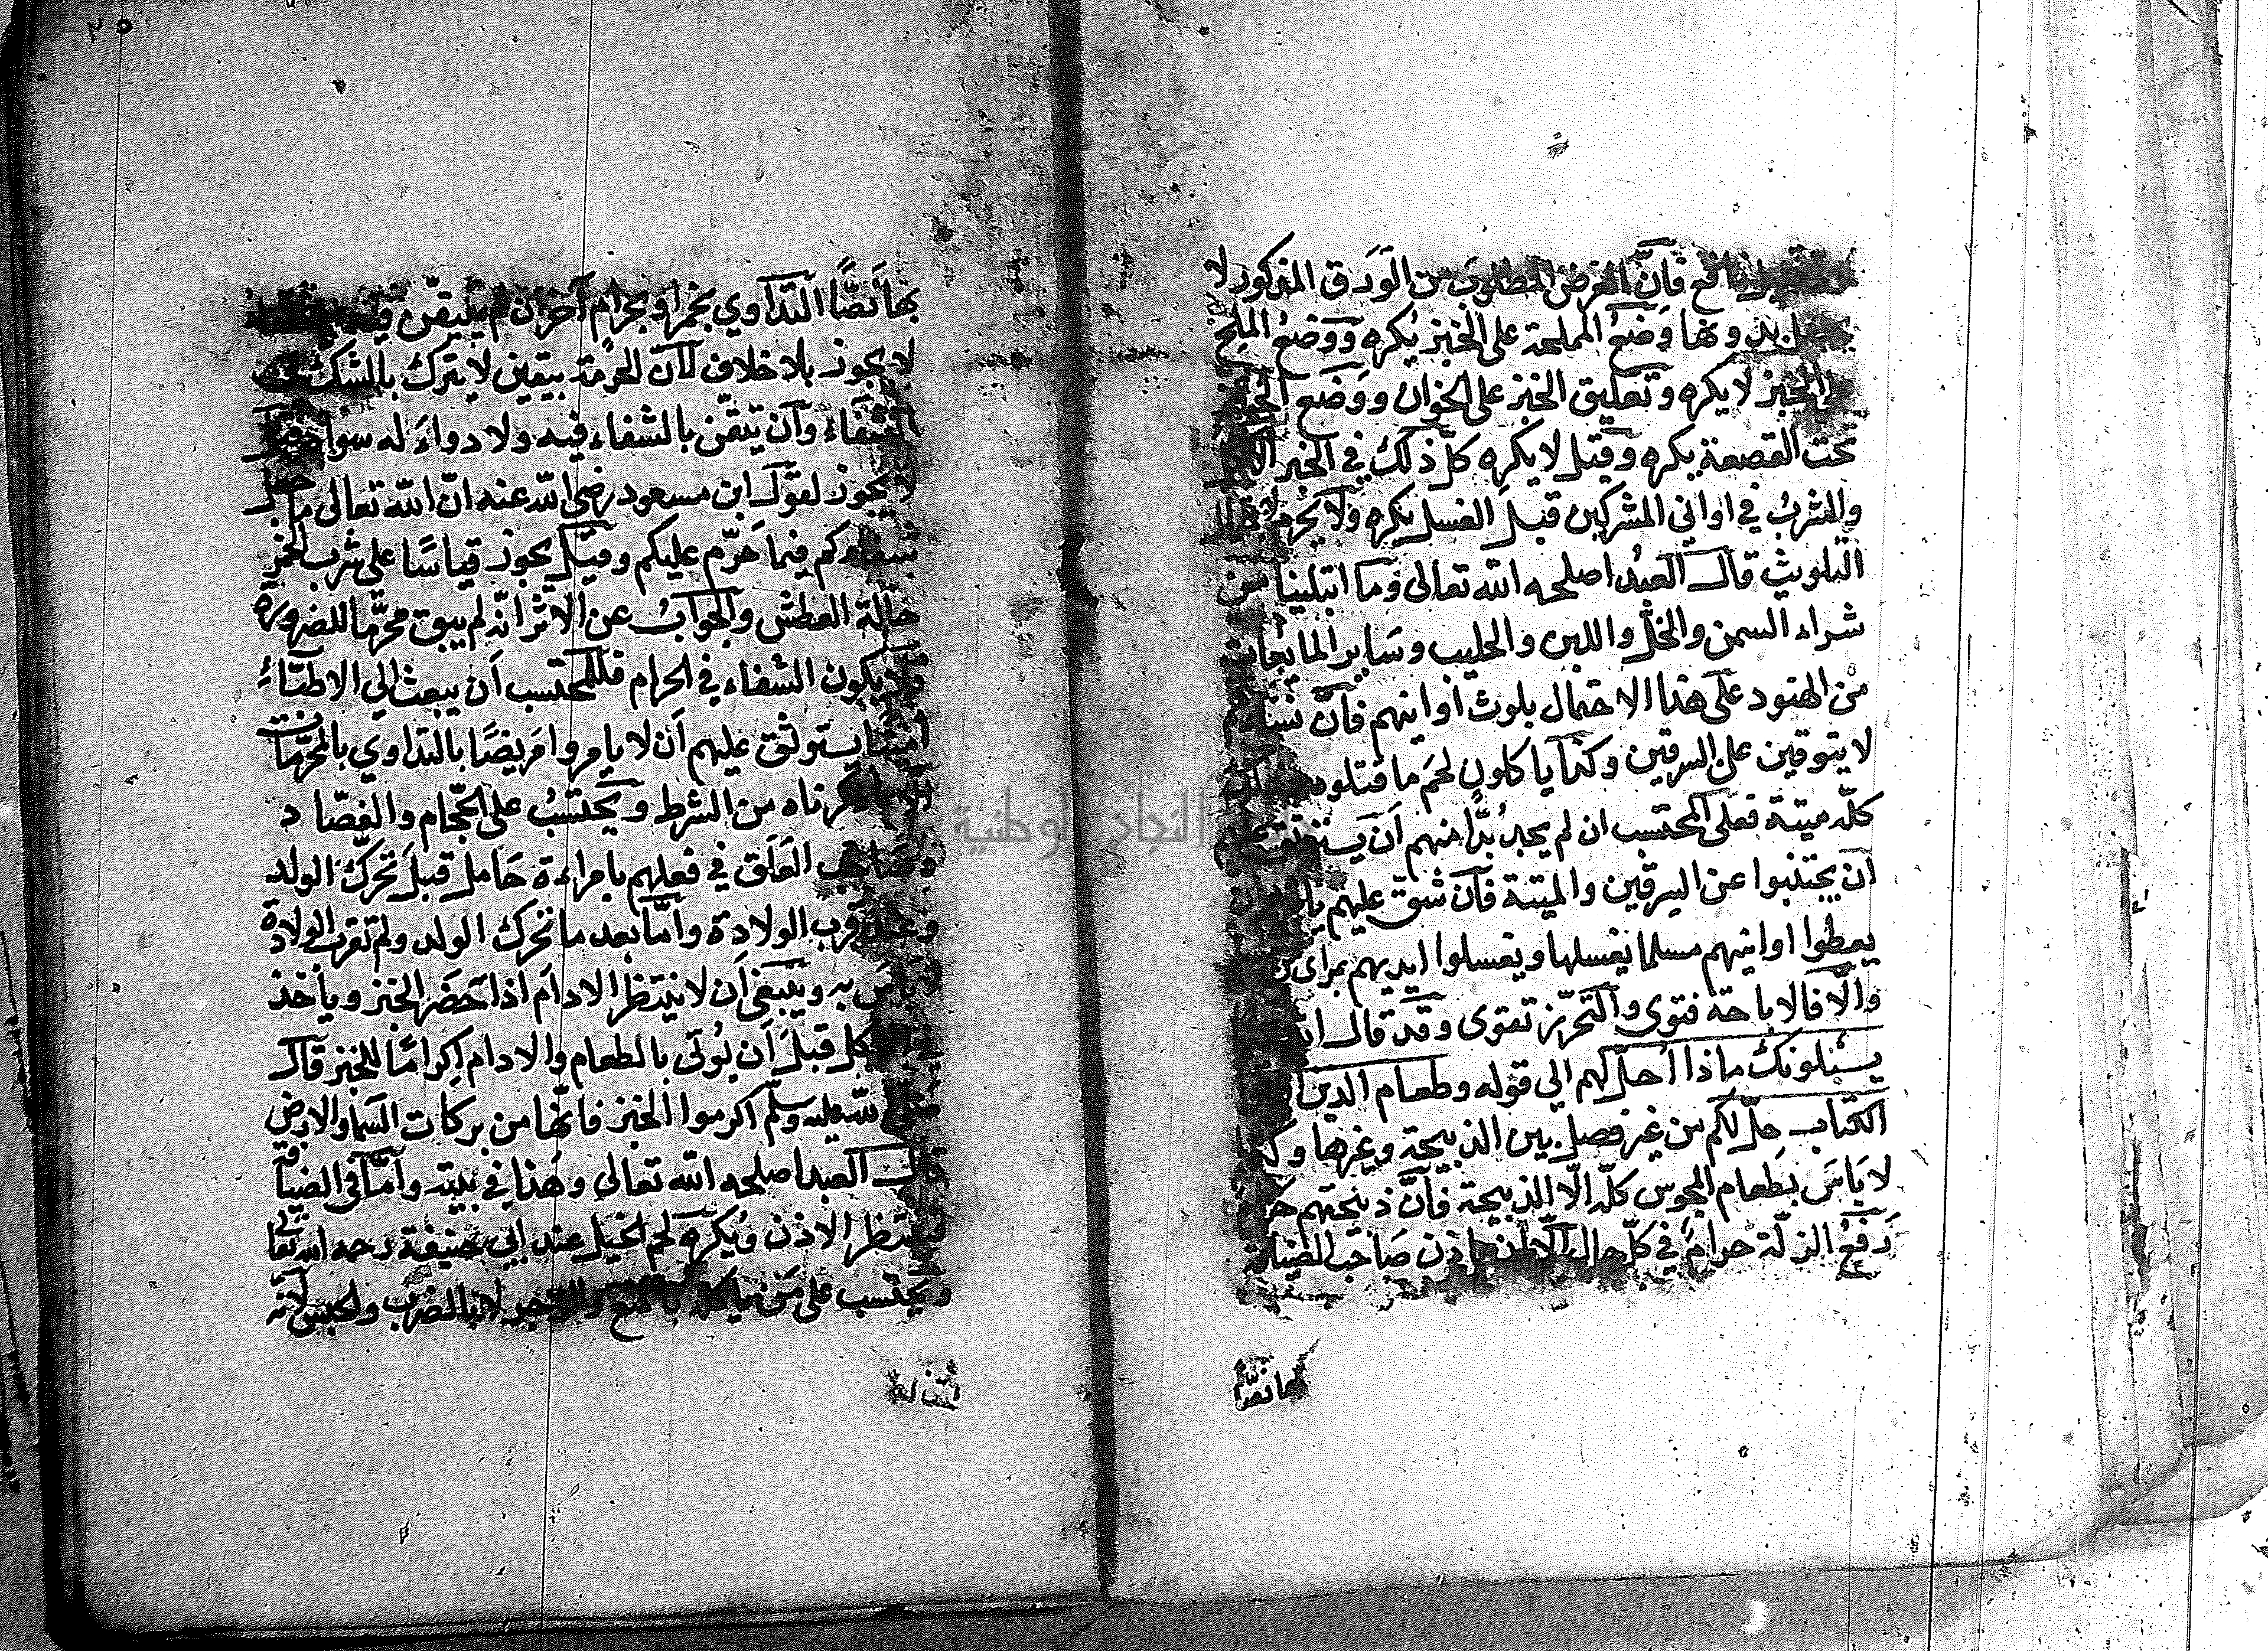 فان الغرض المطلوب من الورق المذكور لا
يحصل بدونها وضع المملحة على الخبز يكره ووضع الملح
على الخبز لا يكره وتعليق الخبز على الخوان ووضع الخبز
تحت القصعة يكره وقيل لا يكره كل ذلك في الخبر
والشرب في اواني المشركين قبل الغسل يكره ولا يحرم
التلويث قال العبد اصلحه الله تعالى وما ابتلينا من
شراء السمن والخل واللبن والحليب وساير المايعات
من الهنود على هذا الاحتمال بلوث اوانيهم فان
لا يتوقين على السرقين وكذا ياكلون لحم ما قتلوه
كله ميتة فعلى المحتسب ان لم يجد بدا منهم ان يستوثق عليهم
ان يجتنبوا عن السرقين والميتة فان شق عليهم
يعطوا اوانيهم مسلما يغسلها ويغسلوا ايديهم بمراى
والا فالاباحة فتوى والتحرز تقوى وقد قال
يسئلونك ماذا احل لهم الى قوله وطعام الذين
الكتاب حل لكم من غير فصل بين الذبيحة وغيرها
لا باس بطعام المجوس كله الا الذبيحة فان ذبيحتهم حرام
رفع الزلة حرام في كل حال الا ان ياذن صاحب الضيافة
بها نصا
بها نصا التداوي بخمر او بحرام آخر ان لم يتيقن فيه
لا يجوز بلا خلاف لان الحرمة بيقين لا يترك بالشك
الشفاء وان تيقن بالشفاء فيه ولا دواء له سواه
لا يجوز لقول ابن مسعود رضي الله عنه ان الله تعالى ما جعل
شفاءكم فيما حرم عليكم وقيل يجوز قياسا على شرب الخمر
حالة العطش والجواب عن الاثر انه لم يبق محرما للضرورة
فلا يكون الشفاء في الحرام فللمحتسب ان يبعث الى الاطباء
يستوثق عليهم ان لا يامروا مريضا بالتداوي بالمحرمات
ذكرناه من الشرط ويحتسب على الحجام والفصاد
وصاحب العلق في فعلهم بامراءة حامل قبل تحرك الولد
وعند قرب الولادة واما بعد ما تحرك الولد ولم تقرب الولادة
لا باس به وينبغي ان لا ينتظر الادام اذا حضر الخبز وياخذ
في الاكل قبل ان يؤتى بالطعام والادام اكراما للخبز قال
صلى الله عليه وسلم اكرموا الخبز فانها من بركات السماء والارض
قال العبد اصلحه الله تعالى وهذا في بيته واما في الضيافة
فينتظر الاذن ويكره لحم الخيل عند ابي حنيفة رحمه الله تعالى
ويحتسب على من ياكله بالمنع والزجر لا بالضرب والحبس لانه